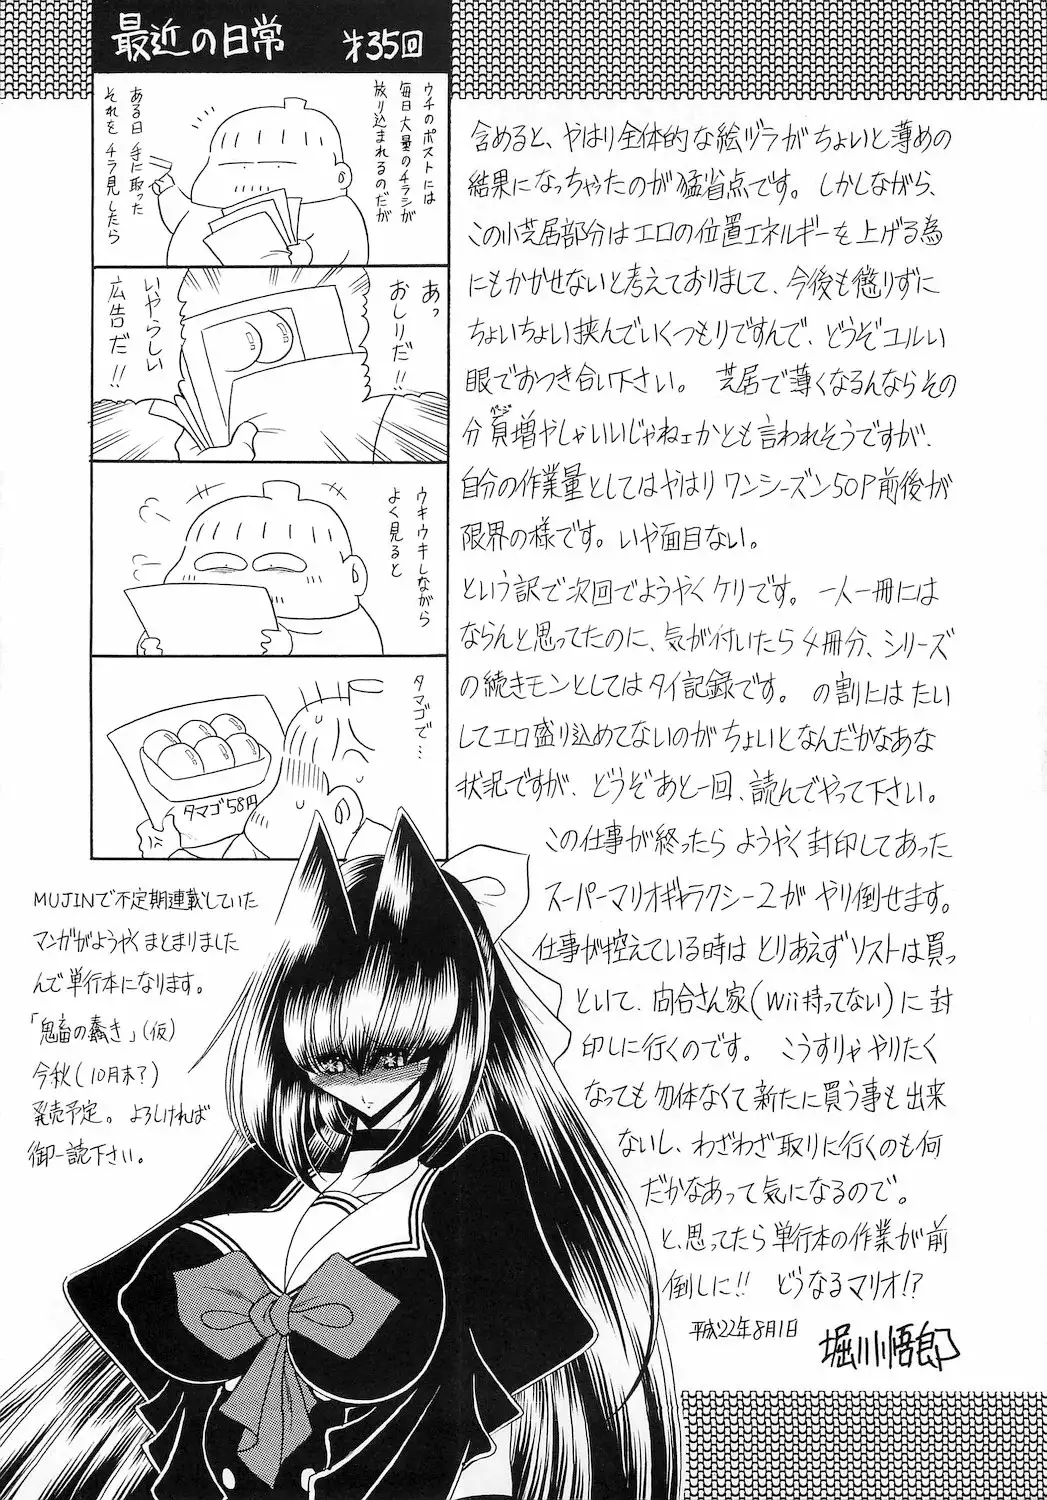 最近の日常 第35回
ウチのポストには
毎日大量のチラシが
放り込まれるのだが
ある日手に取った
それをチラ見したら
あっ
おしりだ!!
いやらしい
広告だ!!
ウキウキしながら
よく見ると
タマゴで…
タマゴ58円
含めると、やはり全体的な絵ヅラがちょいと薄めの
結果になっちゃったのが猛省点です。しかしながら、
この小芝居部分はエロの位置エネルギーを上げる為
にもかかせないと考えておりまして、今後も懲りずに
ちょいちょい挟んでいくつもりですんで、どうぞユルい
眼でおつき合い下さい。芝居で薄くなるんならその
分頁増やしゃいいじゃねェかとも言われそうですが、
自分の作業量としてはやはりワンシーズン50P前後が
限界の様です。いや面目ない。
という訳で次回でようやくケリです。一人一冊には
ならんと思ってたのに、気が付いたら4冊分、シリーズ
の続きモンとしてはタイ記録です。の割にはたい
してエロ盛り込めてないのがちょいとなんだかなあな
状況ですが、どうぞあと一回、読んでやって下さい。
この仕事が終ったらようやく封印してあった
スーパーマリオギャラクシー2がやり倒せます。
仕事が控えている時はとりあえずソフトは買っ
といて、向合さん家(Wii持ってない)に封
印しに行くのです。こうすりゃやりたく
なっても勿体なくて新たに買う事も出来
ないし、わざわざ取りに行くのも何
だかなあって気になるので。
と、思ってたら単行本の作業が前
倒しに!!どうなるマリオ!?
平成22年8月1日
堀川悟郎
MUJINで不定期連載していた
マンガがようやくまとまりました
んで単行本になります。
「鬼畜の蠢き」(仮)
今秋(10月末?)
発売予定。よろしければ
御一読下さい。